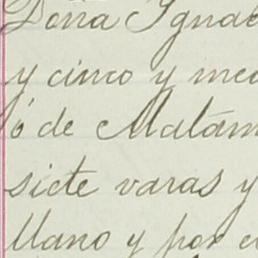 Doña Ignac
y cinco y med
ó de Matám
siete varas y
llano y por e